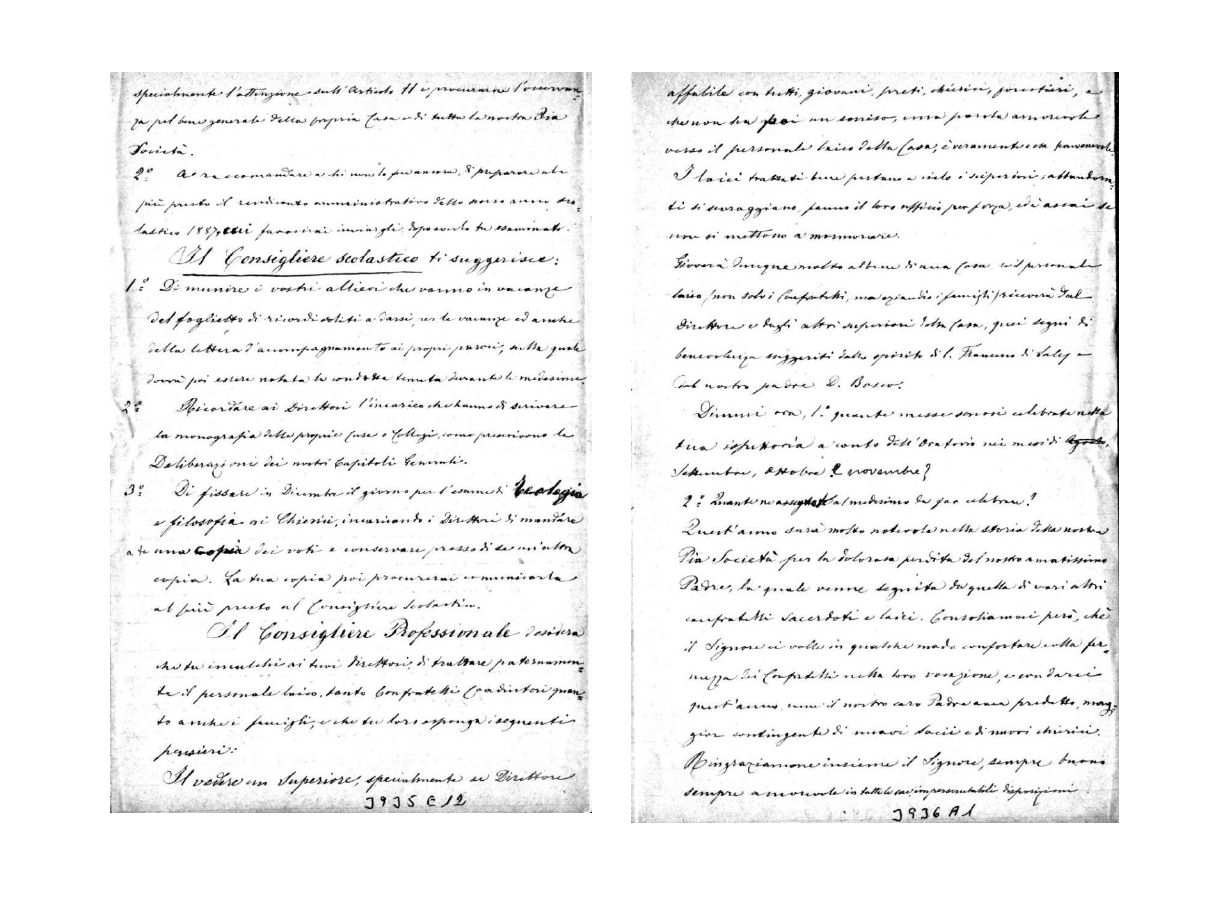 specialmente l'attenzione sull'Articolo 11 e procurarne l'osservan-
za pel bene generale della propria Casa e di tutta la nostra Pia
Società.
2º A raccomandare a chi non lo fece ancora, di preparare al
più presto il rendiconto amministrativo dello scorso anno sco-
lastico 1887, cui favorirai inviargli, dopo averlo tu esaminato.
Il Consigliere scolastico ti suggerisce:
1º Di munire i vostri allievi che vanno in vacanze
del foglietto di ricordi soliti a darsi, per le vacanze ed anche
della lettera d'accompagnamento ai propri parroci, sulla quale
dovrà poi essere notata la condotta tenuta durante le medesime.
2º Ricordare ai Direttori l'incarico che hanno di scrivere
la monografia delle proprie Case o Collegi, come prescrivono le
Deliberazioni dei nostri Capitoli Generali.
3º Di fissare in Dicembre il giorno per l'esame di Teologia
e filosofia ai Chierici, incaricando i Direttori di mandare
a te una copia dei voti e conservare presso di se un'altra
copia. La tua copia poi procurerai comunicarla
al più presto al Consigliere Scolastico.
Il Consigliere Professionale desidera
che tu inculchi ai tuoi Direttori, di trattare paternamen-
te il personale laico, tanto Confratelli Coadiutori quan-
to anche i famigli, e che tu loro esponga i seguenti
pensieri:
Il vedere un Superiore, specialmente se Direttore
J935 C 12
affabile con tutti, giovani, preti, chierici, forestieri, e
che non ha poi un sorriso, una parola amorevole
verso il personale laico della Casa, è veramente cosa
I laici trattati bene portano a cielo i superiori; abbandona-
ti si scoraggiano, fanno il loro ufficio per forza, ed è assai se
non si mettono a mormorare.
Gioverà dunque molto al bene di una Casa se il personale
laico (non solo i Confratelli, ma eziandio i famigli) riceverà dal
Direttore e dagli altri superiori della Casa, quei segni di
benevolenza suggeriti dallo spirito di S. Francesco di Sales e
dal nostro padre D. Bosco.
Dimmi ora, 1.º quante messe sonosi celebrate nella
tua ispettoria a conto dell'Oratorio nei mesi di Agosto,
Settembre, Ottobre e novembre?
2.º Quante ne al medesimo da far celebrare?
Quest'anno sarà molto notevole nella storia della nostra
Pia Società per la dolorosa perdita del nostro amatissimo
Padre, la quale venne seguita da quella di vari altri
confratelli sacerdoti e laici. Consoliamoci però, chè
il Signore ci volle in qualche modo confortare colla fer-
mezza dei Confratelli nella loro vocazione, e con darci
quest'anno, come il nostro caro Padre avea predetto, mag-
gior contingente di nuovi Socii e di nuovi chierici.
Ringraziamone insieme il Signore, sempre buono
sempre amorevole in tutte le sue imperscrutabili disposizioni.
J936 A 1